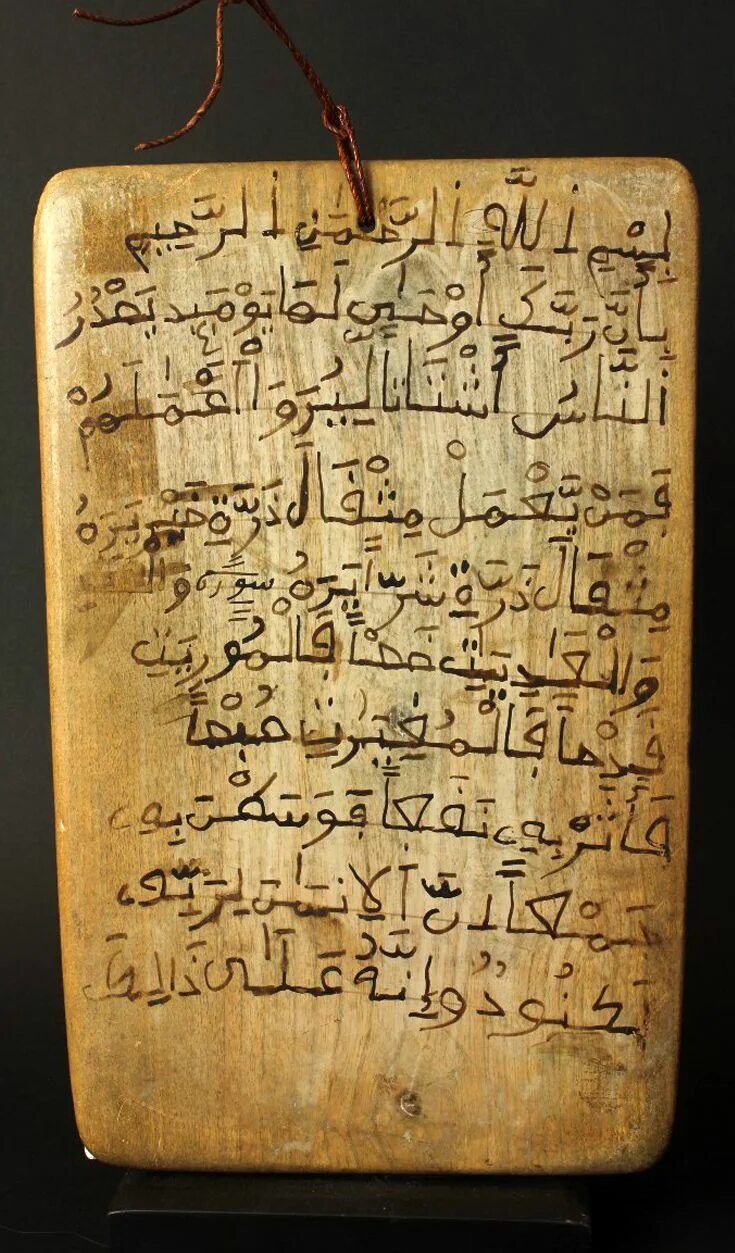 بسم الله الرحمن الرحيم
بأن ربك أوحى لها يومئذ يصدر
الناس أشتاتا ليروا أعملهم
فمن يعمل مثقال ذرة خير يره
مثقال ذرة شرا يره سورة
والعديت ضبحا فالموريت
قدحا فالمغيرت صبحا
فأثرن به نقعا فوسطن به
جمعا إن الإنسن لربه
لكنود وإنه على ذالك